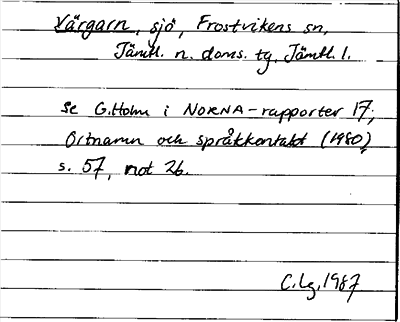 Värgarn, sjö, Frostvikens sn,
Jämtl. n. doms. tg, Jämtl. l.
Se G. Holm i NORNA-rapporter 17;
Ortnamn och språkkontakt (1980),
s. 57, not 26.
C. Lg. 1987